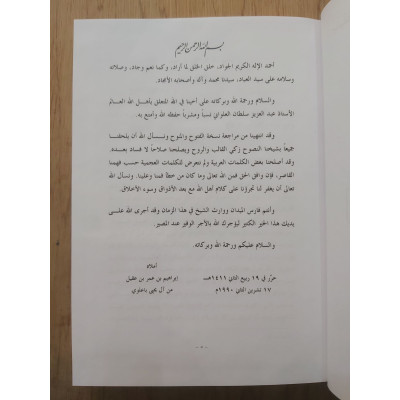 بسم الله الرحمن الرحيم
أحمد الإله الكريم الجواد، خلق الخلق لما أراد، وكما نعم وجاد، وصلاته
وسلامه على سيد العباد، سيدنا محمد وآله وأصحابه الأمجاد.
والسلام ورحمة الله وبركاته على أخينا في الله المتعلق بأهل الله العالم
الأستاذ عبد العزيز سلطان العلواني نسباً ومشرباً حفظه الله وأمتع به.
وقد انتهينا من مراجعة نسخة الفتوح والمنوح ونسأل الله أن يلحقنا
جميعاً بشيخنا النصوح زكي القالب والروح ويصلحنا صلاحاً لا فساد بعده.
وقد أصلحنا بعض الكلمات العربية ولم نتعرض للكلمات العجمية حسب فهمنا
القاصر، فإن وافق الحق فمن الله وما كان من خطأ فمنا وعلينا. ونسأل الله
تعالى أن يغفر لنا تجرؤنا على كلام أهل الله مع بعد الأذواق وسوء الأخلاق.
وأنتم فارس الميدان ووارث الشيخ في هذا الزمان وقد أجرى الله على
يديك هذا الخير الكثير ليؤجرك الله بالأجر الوفير عند المصير.
والسلام عليكم ورحمة الله وبركاته.
أملاه
حرّر في ١٩ ربيع الثاني ١٤١١هـ إبراهيم بن عمر بن عقيل
١٧ تشرين الثاني ١٩٩٠م من آل يحيى باعلوي